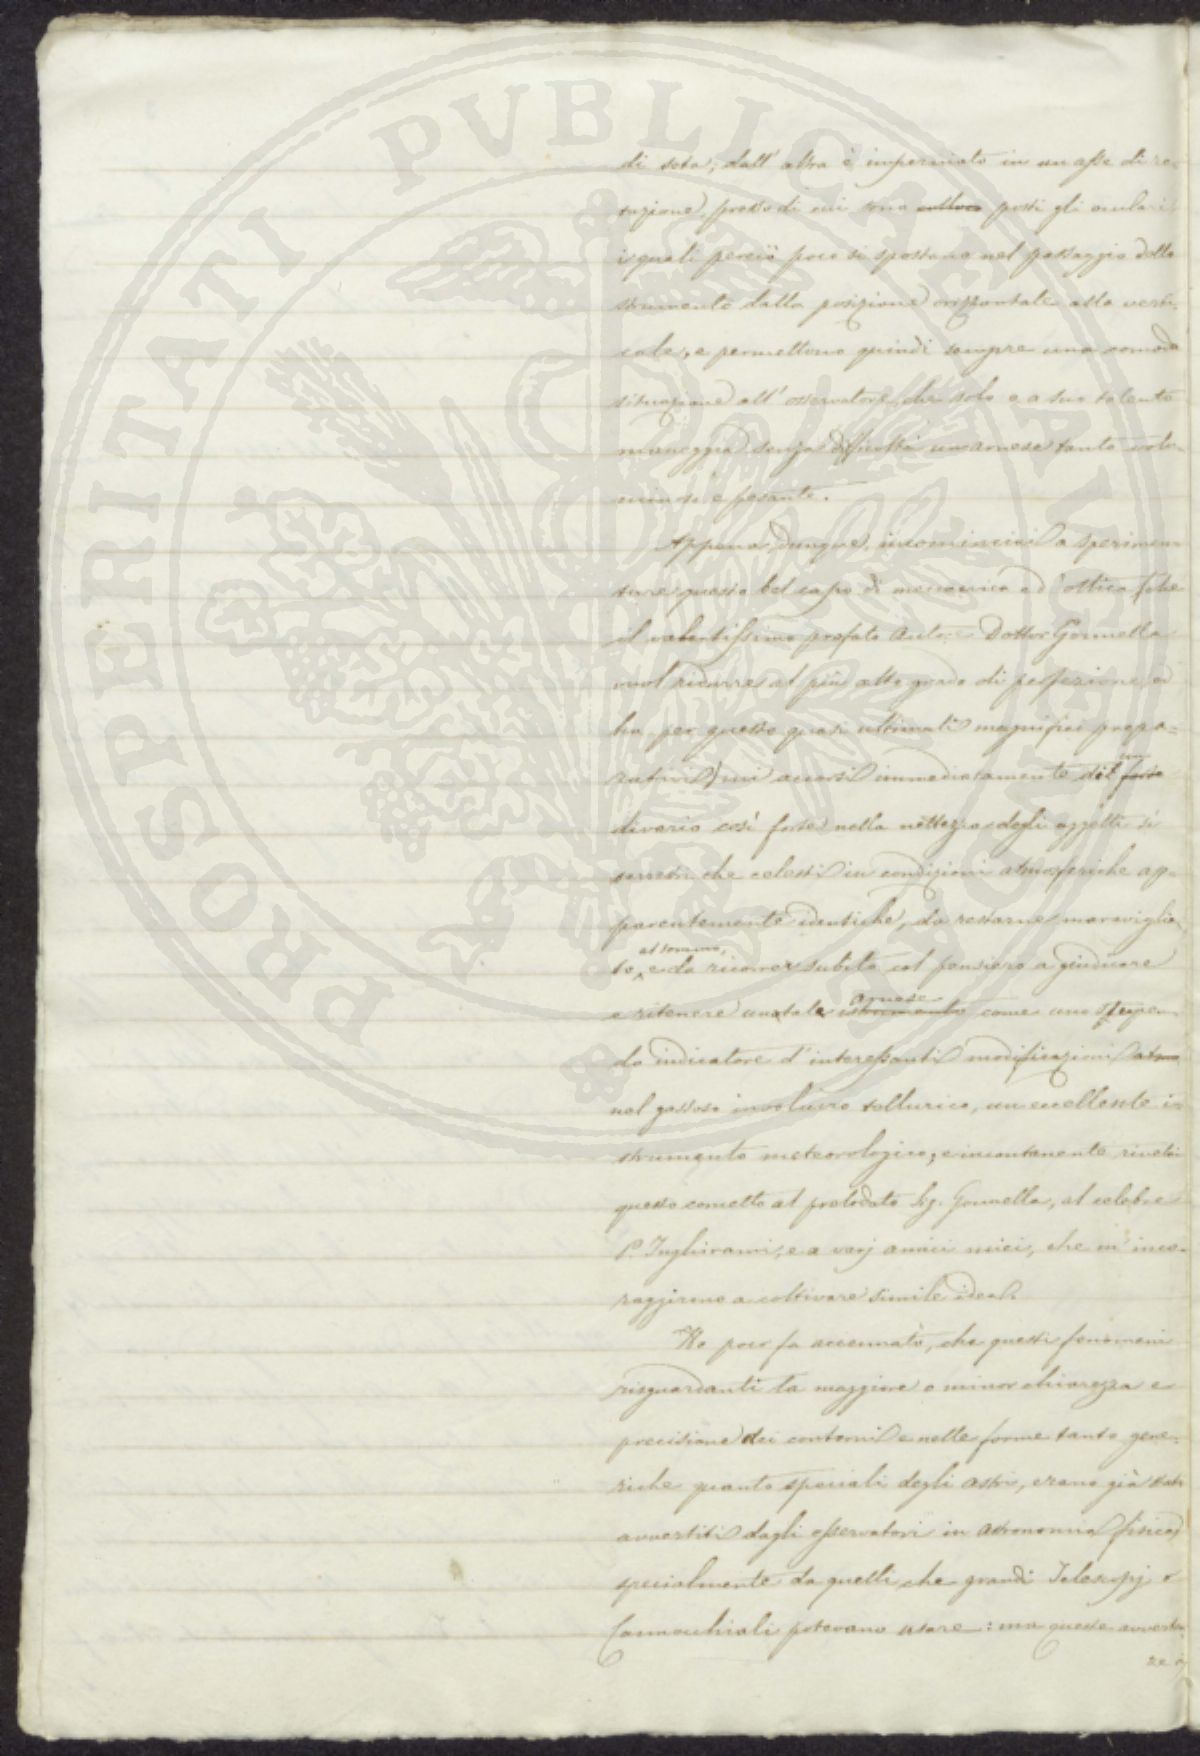 di seta; dall' altra è imperniato in un asse di ro-
tazione, presso di cui sono colloca posti gli oculari
i quali perciò poco si spostano nel passaggio dello
strumento dalla posizione orizzontale alla verti-
cale, e permettono quindi sempre una comoda
situazione all' osservatore, che solo e a suo talento
maneggia senza difficoltà un arnese tanto volu-
minoso e pesante.
Appena, dunque, incominciai a sperimen-
tare questo bel capo di meccanica e d' ottica (che
il valentissimo prefato Autore Dottor Gonnella
vuol ridurre al più alto grado di perfezione, ed
ha per questo quasi ultimati magnifici prepa=
rativi) mi accorsi immediatamente del forte
divario così forte nella nettezza degli oggetti sì
terrestri che celesti in condizioni atmosferiche ap-
parentemente identiche, da restarne maraviglia
to, e da ricorrer subito col pensiero a giudicare
e ritenere un tale istrumento arnese come uno stupen-
do indicatore d' interessanti modificazioni atmo
nel gassoso involucro tellurico, un eccellente i-
strumento meteorologico; e incontanente rivelai
questo concetto al prelodato Sig. Gonnella, al celebre
P. Inghirami, e a varj amici miei, che m' inco-
raggirono a coltivare simile idea.
Ho poco fa accennato, che questi fenomeni
risguardanti la maggiore o minor chiarezza e
precisione dei contorni e nelle forme tanto gene-
riche quanto speciali degli astri, erano già stati
avvertiti dagli osservatori in astronomia fisica,
specialmente da quelli, che grandi Telescopj o
Cannocchiali potevano usare: ma queste avverten
ze
PROSPERITATI PVBLICAE AVGENDAE